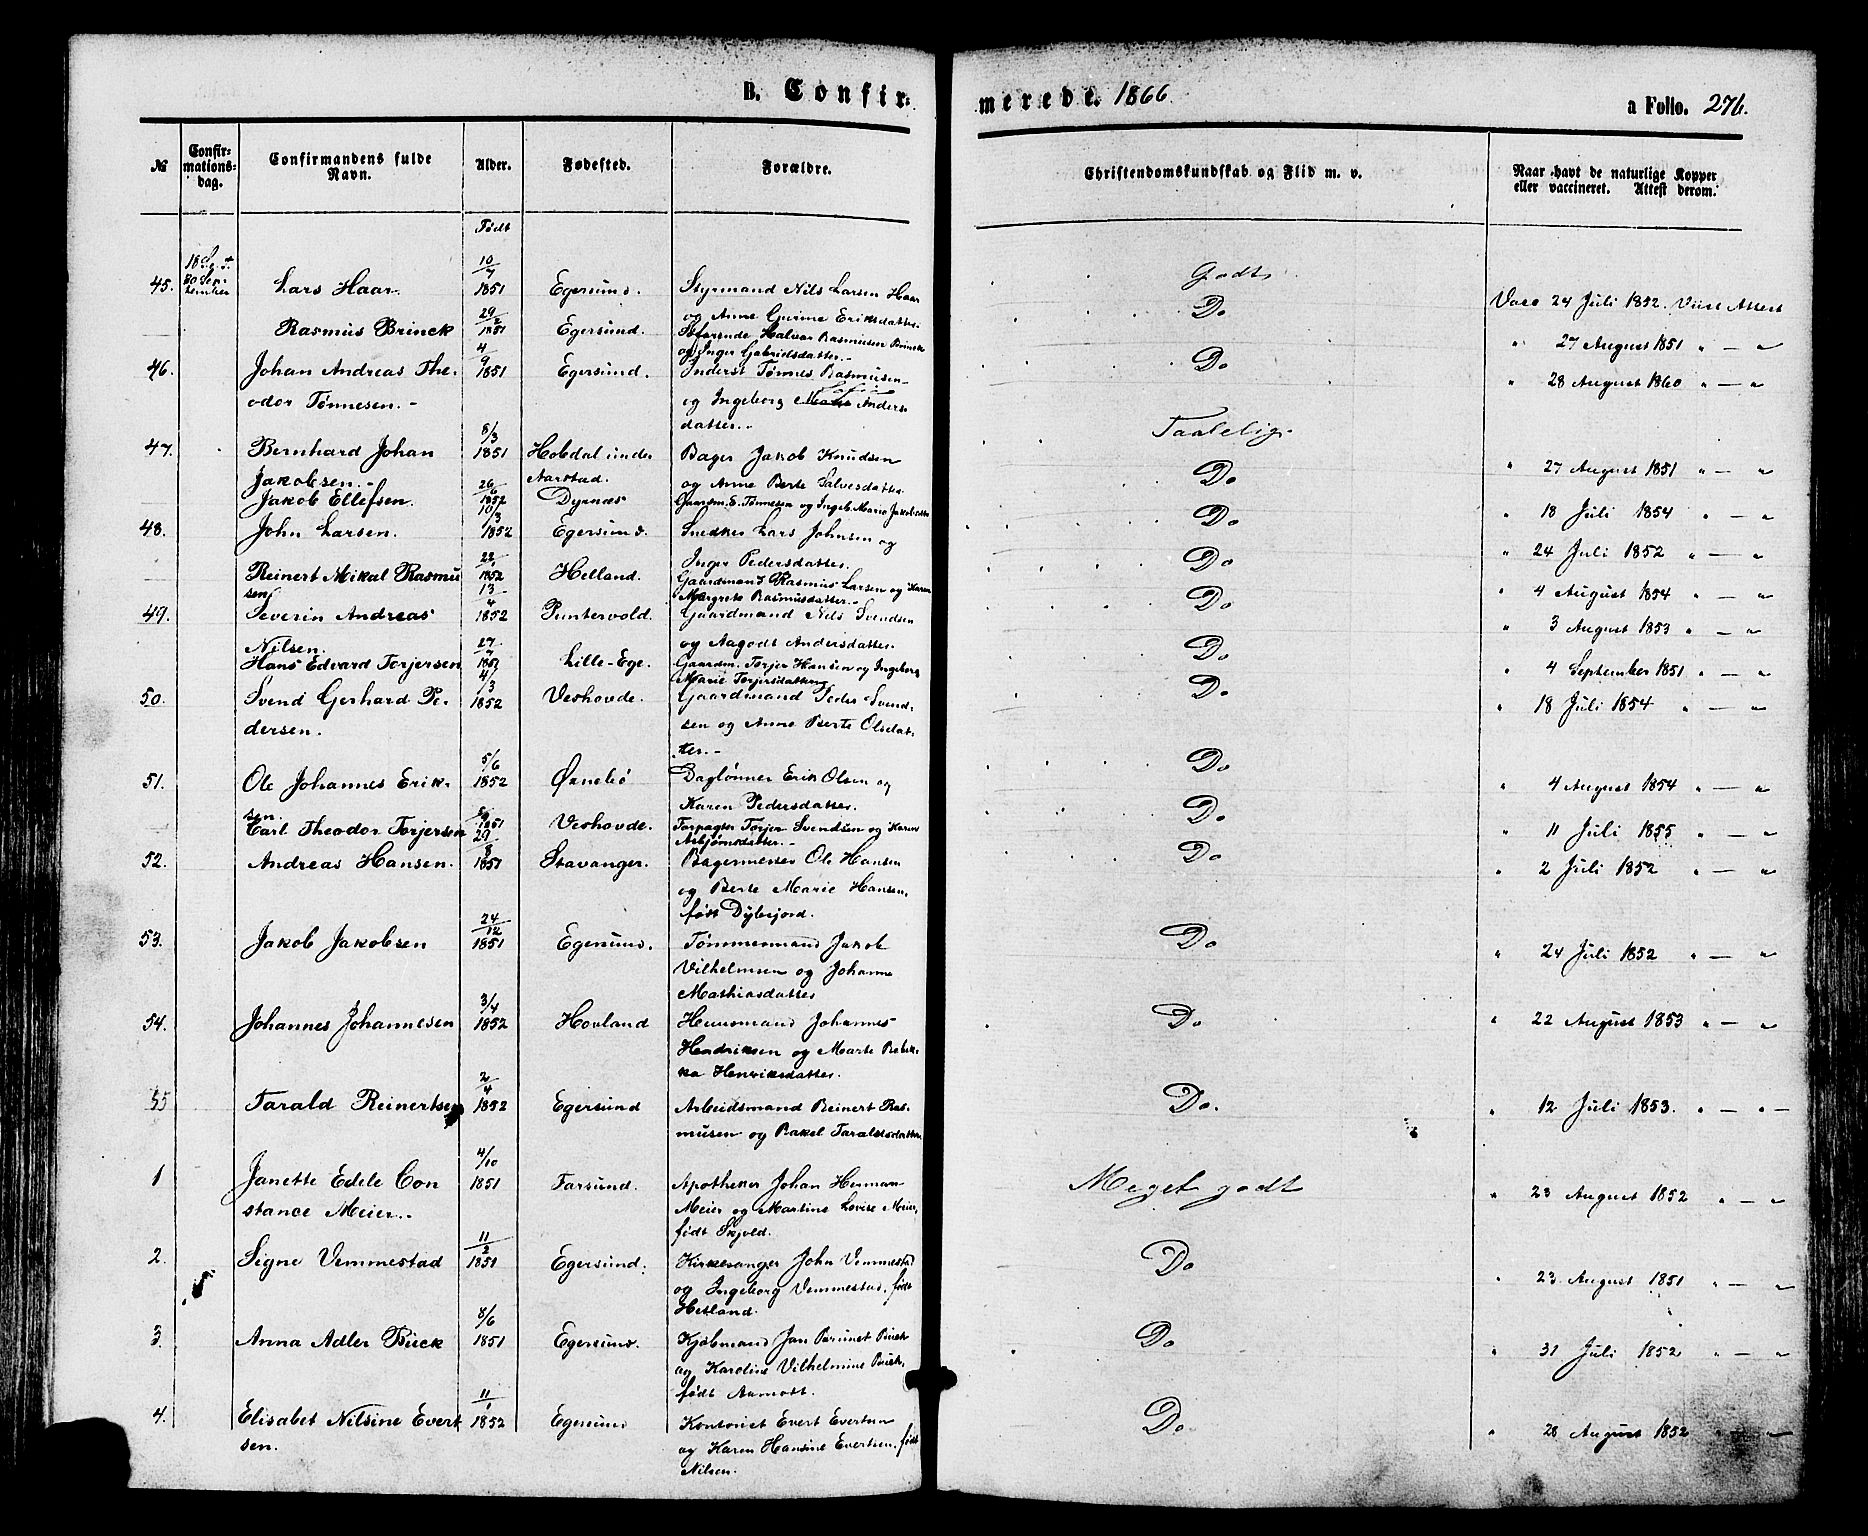 B. Confir-
merede. 1866
a Folio. 276.
№ Confir-mations-dag. Confirmandens fulde Navn. Alder. Fødested. Forældre. Christendomskundskab og Flid m. v. Naar havt de naturlige Kopper eller vaccineret. Attest derom.
Født
45. Lars Haar. 10/7 1851 Egersund. Styrmand Nils Larsen Haar Godt Vacc 24 Juli 1852. Attest
og Anne Gurine Eriksdatter.
Rasmus Brinck 29/2 1851 Egersund. Halvor Rasmusen Brinck Do " 27 August 1851 " — "
og Inger Gabrielsdatter.-
46. Johan Andreas The- 4/9 1851 Egersund. Inderst Tønnes Rasmusen Do " 28 August 1860 " — "
odor Tønnesen.- og Ingeborg Anders
datter.-
47. Bernhard Johan 8/3 1851 Hobdal under Bager Jakob Knudsen Taalelig " 27 August 1851 " — "
Jakobsen.- Aarstad. og Anne Berte Salvesdatter.
Jakob Ellefsen. 26/6 1852 Dyrnæs Gaardm. E. Tønnesen og Ingeb. Marie Jakobsdatter Do " 18 Juli 1854 " — "
48. John Larsen. 10/3 1852 Egersund. Snedker Lars Johnsen og Do " 24 Juli 1852 " — "
Inger Pedersdatter.
Reinert Mikal Rasmu 1852 Helland. Gaardmand Rasmus Larsen og Karen Do " 4 August 1854 " — "
sen Margrete Rasmusdatter.-
49. Severin Andreas 13/4 1852 Puntervold. Gaardmand Nils Svendsen Do " 3 August 1853 " — "
Nilsen. og Aagodt Andersdatter.
Hans Edvard Torjersen 1851 Lille-Ege. Gaardm. Torjer Hansen og Ingeborg Do " 4 September 1851 " — "
Marie Torjersdatter
50. Svend Gerhard Pe- 4/3 1852 Veshovde. Gaardmand Peder Svend- Do " 18 Juli 1854 " — "
dersen. sen og Anne Berte Olsdat-
ter.-
51. Ole Johannes Erik- 5/6 1852 Ørnebø Daglønner Erik Olsen og Do " 4 August 1854 " — "
sen. Karen Pedersdatter.
Carl Theodor Torjersen 1851 Veshovde. Torjer Svendsen og Karen Do " 11 Juli 1855 " — "
Asbjørnsdatter.-
52. Andreas Hansen. 29/8 1851 Stavanger. Bagermester Ole Hansen Do " 2 Juli 1852 " — "
og Berte Marie Hansen,
født Dybesjord.
53. Jakob Jakobsen 24/12 1851 Egersund. Tømmermand Jakob Do " 24 Juli 1852 " — "
Vilhelmsen og Johanne
Mathiasdatter
54. Johannes Johannesen 3/4 1852 Hovland Huusmand Johannes Do " 22 August 1853 " — "
Hendriksen og Marte Rebek-
ka Henriksdatter.
55 Tarald Reinertsen 2/4 1852 Egersund Arbeidsmand Reinert Ras- Do. " 12 Juli 1853. " — " —
musen og Rakel Taraldsdatter.
1 Janette Edele Con 4/10 1851 Farsund. Apotheker Johan Herman Meget godt " 23 August 1852 " — "
stance Meier.- Meier og Martine Lovise Meier,
født Skjold.
2. Signe Vemmestad 11/2 1851 Egersund. Kirkesanger John Vemmestad Do " 23 August 1851 " — "
og Ingeborg Vemmestad, født
Hetland.
3. Anna Adler Bück 8/6 1851 Egersund. Kjøbmand Jan Brunet Büch Do " 31 Juli 1852 " — "
og Karoline Vilhelmine Büch,
født Aamodt.
4. Elisabet Nilsine Evert 11/1 1852 Egersund Kontorist Evert Evertsen Do " 28 August 1852 " — "
sen. og Karen Hansine Evertsen, født
Nilsen.